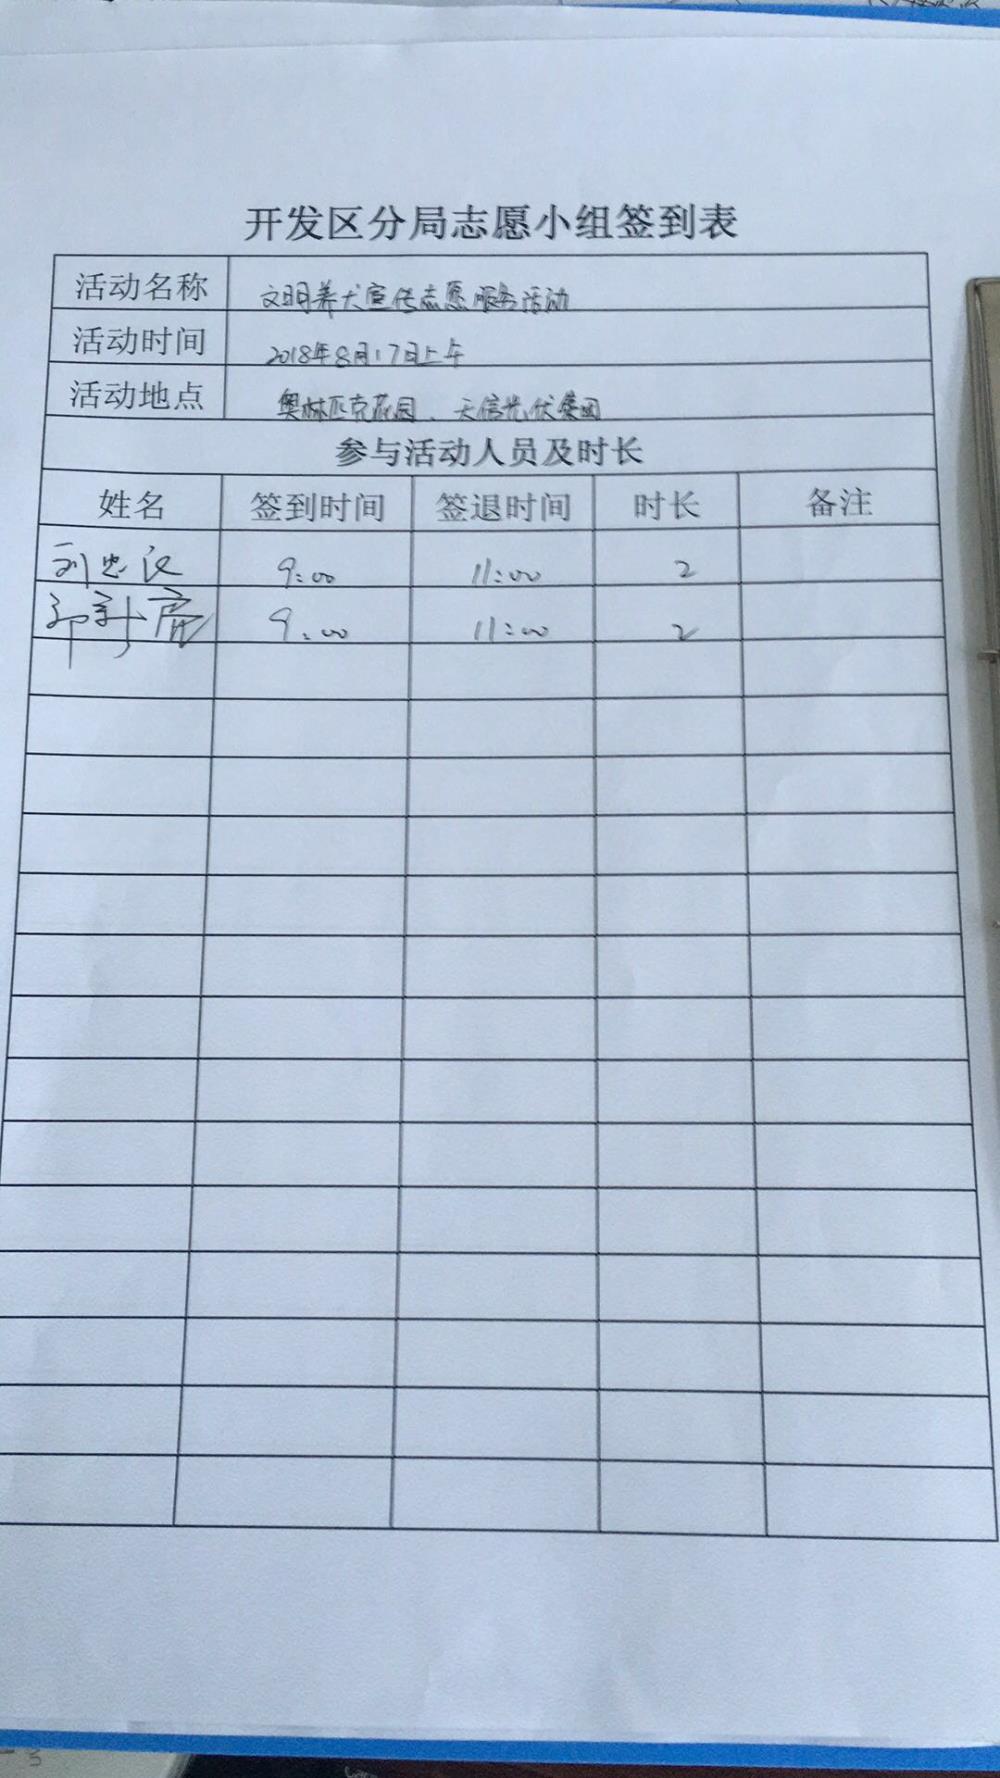 开发区分局志愿小组签到表
活动名称 文明养犬宣传志愿服务活动
活动时间 2018年8月17日上午
活动地点 奥林匹克花园、天信光伏集团
参与活动人员及时长
姓名 签到时间 签退时间 时长 备注
刘忠 9:00 11:00 2
9:00 11:00 2